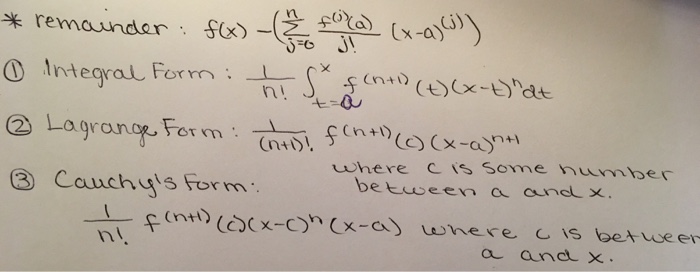 * remainder : f(x) - (∑_{j=0}^{n} f^{(j)}(a)/j! (x-a)^{(j)})
① Integral Form : 1/n! ∫_{t=a}^{x} f^{(n+1)}(t)(x-t)^n dt
② Lagrange Form : 1/(n+1)! f^{(n+1)}(c)(x-a)^{n+1}
where c is some number
between a and x.
③ Cauchy's Form:
1/n! f^{(n+1)}(c)(x-c)^n(x-a) where c is between
a and x.